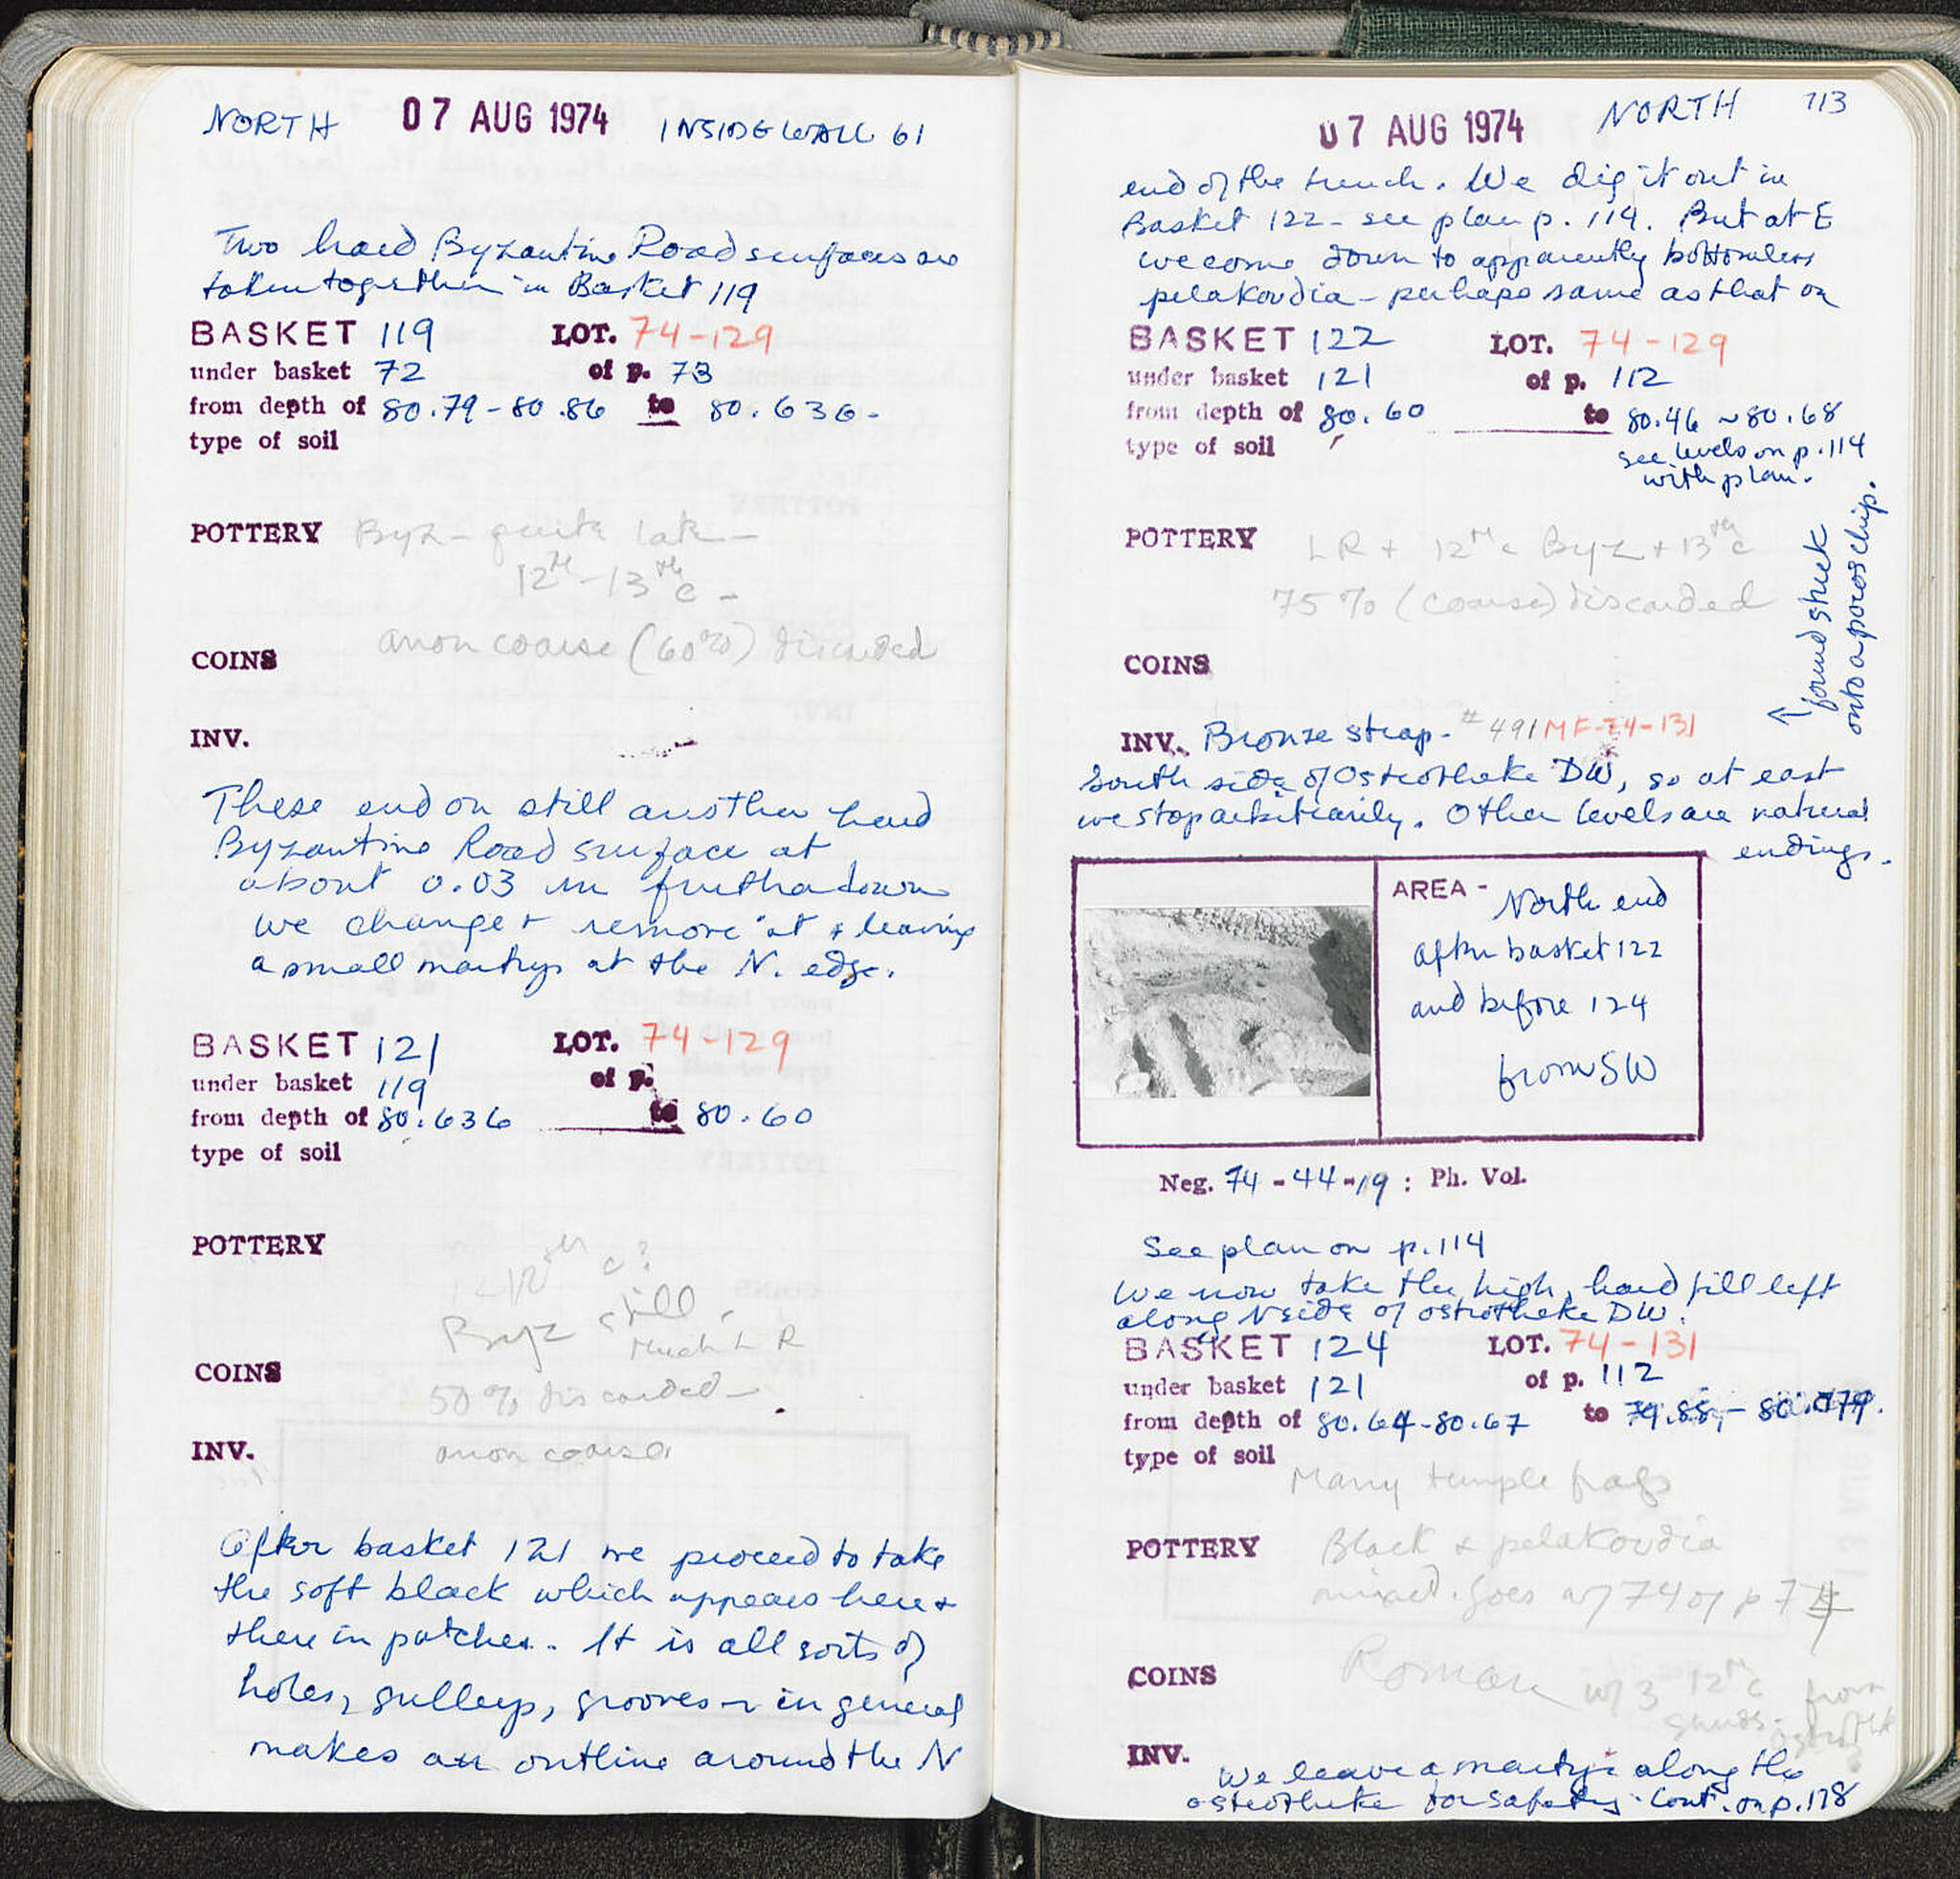 NORTH 07 AUG 1974 INSIDE WALL 61
Two hard Byzantine Road surfaces are
taken together in Basket 119
BASKET 119 LOT. 74-129
under basket 72 of p. 73
from depth of 80.79-80.86 to 80.636-
type of soil
POTTERY Byz - quite late -
12th-13th c -
anon coarse (60%) discarded
COINS
INV.
These end on still another hard
Byzantine Road surface at
about 0.03 m further down
we change + remove it + leaving
a small martyr at the N. edge.
BASKET 121 LOT. 74-129
under basket 119 of p.
from depth of 80.636 to 80.60
type of soil
POTTERY
12th c?
Byz still,
Much LR
COINS
50% discarded-
INV. anon coarse
After basket 121 we proceed to take
the soft black which appears here +
there in patches. It is all sorts of
holes, gulleys, grooves + in general
makes an outline around the N
07 AUG 1974 NORTH 113
end of the trench. We dig it out in
Basket 122 - see plan p. 114. But at E
we come down to apparently bottomless
pelakoudia - perhaps same as that on
BASKET 122 LOT. 74-129
under basket 121 of p. 112
from depth of 80.60 to 80.46 ~ 80.68
see levels on p. 114
with plan.
type of soil
POTTERY LR + 12th c Byz + 13th c
75% (coarse) discarded
COINS
↑ found stuck
onto a poros chip.
INV. Bronze strap - #491 MF-74-131
South side of Osteotheke DW, so at east
we stop arbitrarily. Other levels are natural
endings.
AREA - North end
after basket 122
and before 124
from SW
Neg. 74-44-19 : Ph. Vol.
See plan on p. 114
We now take the high, hard fill left
along N side of osteotheke DW.
BASKET 124 LOT. 74-131
under basket 121 of p. 112
from depth of 80.64-80.67 to 79.85,-80.
type of soil
Many temple frags
POTTERY Black & pelakoudia
mixed. Goes w/ 74 of p 74
COINS Roman w/ 3 12th c
sherds - from
osteotheke?
INV.
We leave a martyr along the
osteotheke for safety. Cont. on p. 118